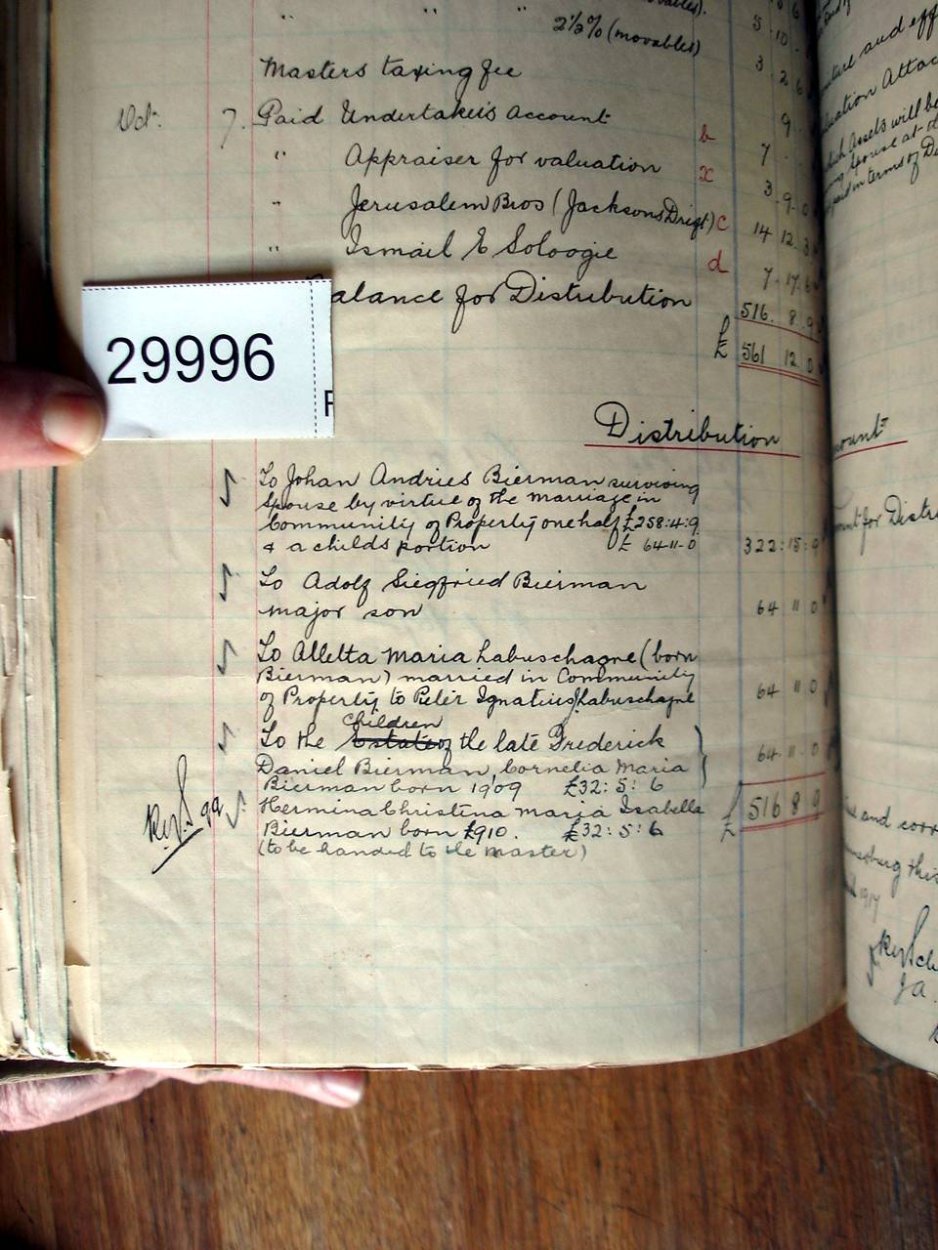 " "
2½% (movables) 5 10 -
Masters taxing fee 3 2 6
Oct. 7. Paid Undertakers account b 9
" Appraiser for valuation x 7
" Jerusalem Bros (Jacksons Drift) c 3 9 0
" Ismail E Soloogie d 14 12 3
7 17 6
alance for Distribution 516. 8 9
£ 561 12 0
29996
Distribution
To Johan Andries Bierman surviving
spouse by virtue of the marriage in
Community of Property one half £258:4:9
& a childs portion £ 64-11-0 322:15:9
To Adolf Siegfried Bierman
major son 64 11 0
To Alletta Maria Labuschagne (born
Bierman) married in Community
of Property to Pieter Ignatius Labuschagne 64 11 0
Children
To the Estate of the late Frederick
Daniel Bierman, Cornelia Maria 64-11-0
Bierman born 1909 £32:5:6
Hermina Christina Maria Isabella
£ 516 8 9
Bierman born £910. £32:5:6
(to be handed to the Master)
ount
and corr
this
1917